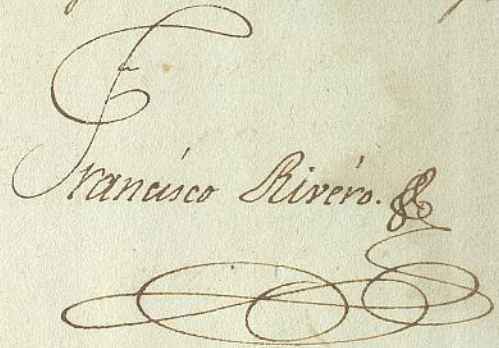 Francisco Rivero.